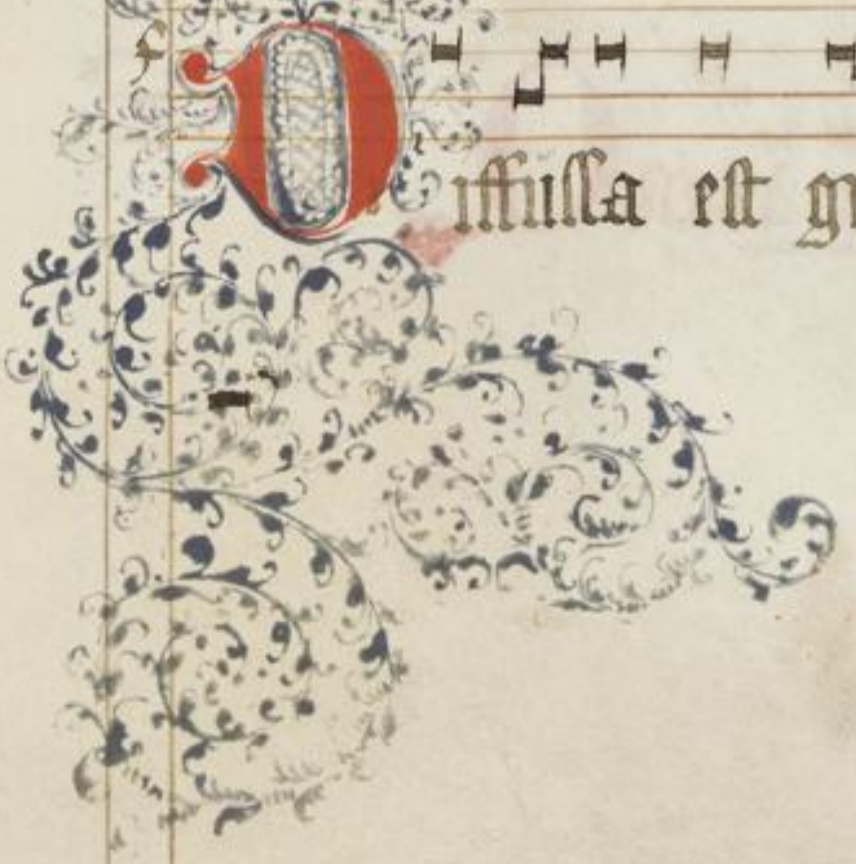 Diffussa est gr